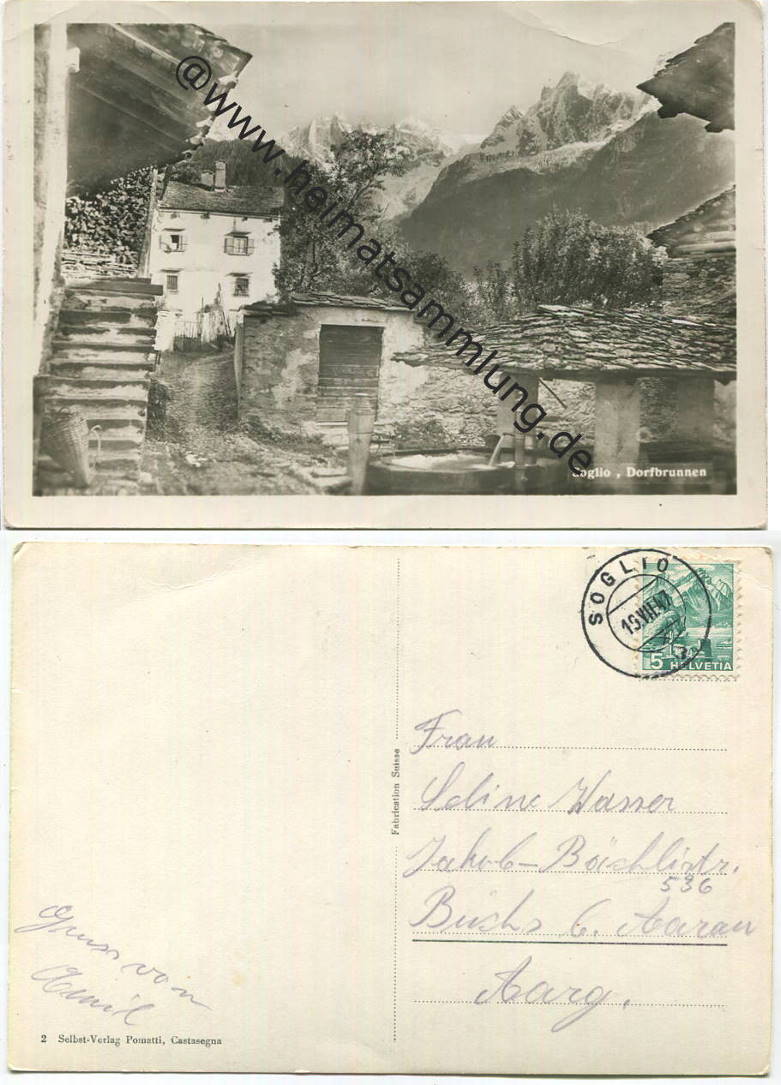 @www.heimatsammlung.de
Soglio , Dorfbrunnen
SOGLIO
19.VII.42
5 HELVETIA
Fabrication Suisse
Frau
Seline Wasser
Jakob-Bächlistr.
536
Buchs b. Aarau
Aarg.
Gruss von
Emil
2 Selbst-Verlag Pomatti, Castasegna